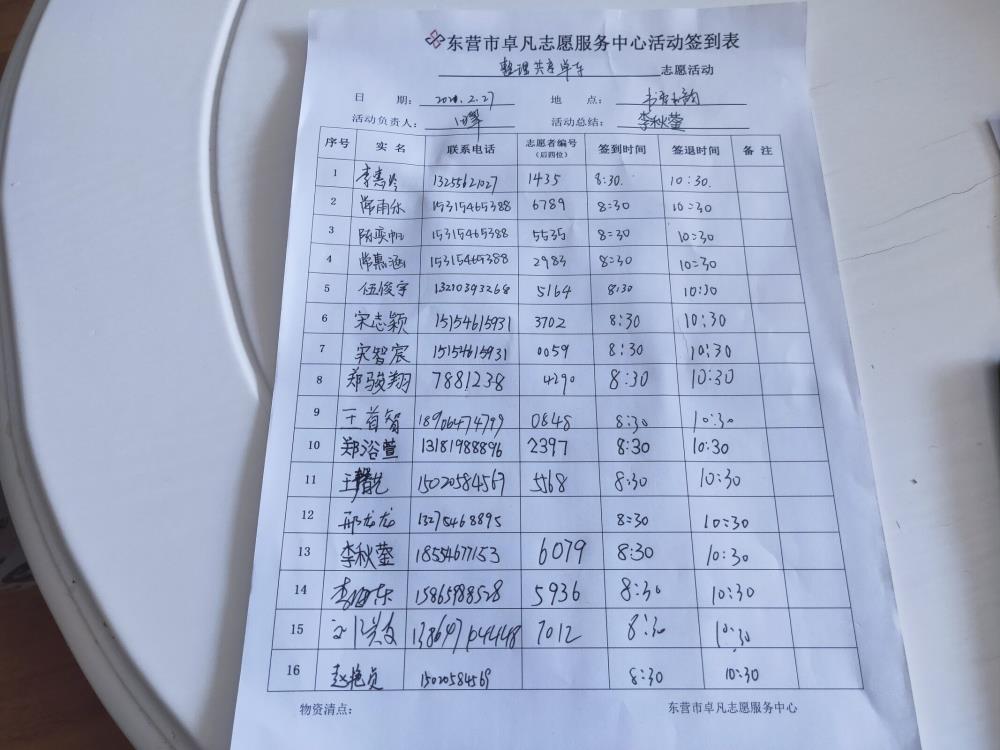 东营市卓凡志愿服务中心活动签到表
整理共享单车 志愿活动
日 期: 2021.2.27 地 点:
活动负责人: 活动总结: 李秋蓥
序号 实名 联系电话 志愿者编号(后四位) 签到时间 签退时间 备注
1 李惠 13255621027 1435 8:30. 10:30.
2 常雨乐 15315465388 6789 8:30 10:30
3 陈奕帆 15315465388 5535 8:30 10:30
4 常惠涵 15315465388 2983 8:30 10:30
5 伍俊宇 13210393268 5164 8:30 10:30
6 宋志颖 15154615931 3702 8:30 10:30
7 宋智宸 15154615931 0059 8:30 10:30
8 郑骏翔 7881238 4290 8:30 10:30
9 王首智 18906474799 0848 8:30 10:30
10 郑浴萱 13181988896 2397 8:30 10:30
11 王 15020584569 5568 8:30 10:30
12 邢龙龙 13275468895 8:30 10:30
13 李秋蓥 18554677153 6079 8:30 10:30
14 李 15865988528 5936 8:30 10:30
15 7012 8:30 10:30
16 赵艳贞 15020584569 8:30 10:30
物资清点: 东营市卓凡志愿服务中心